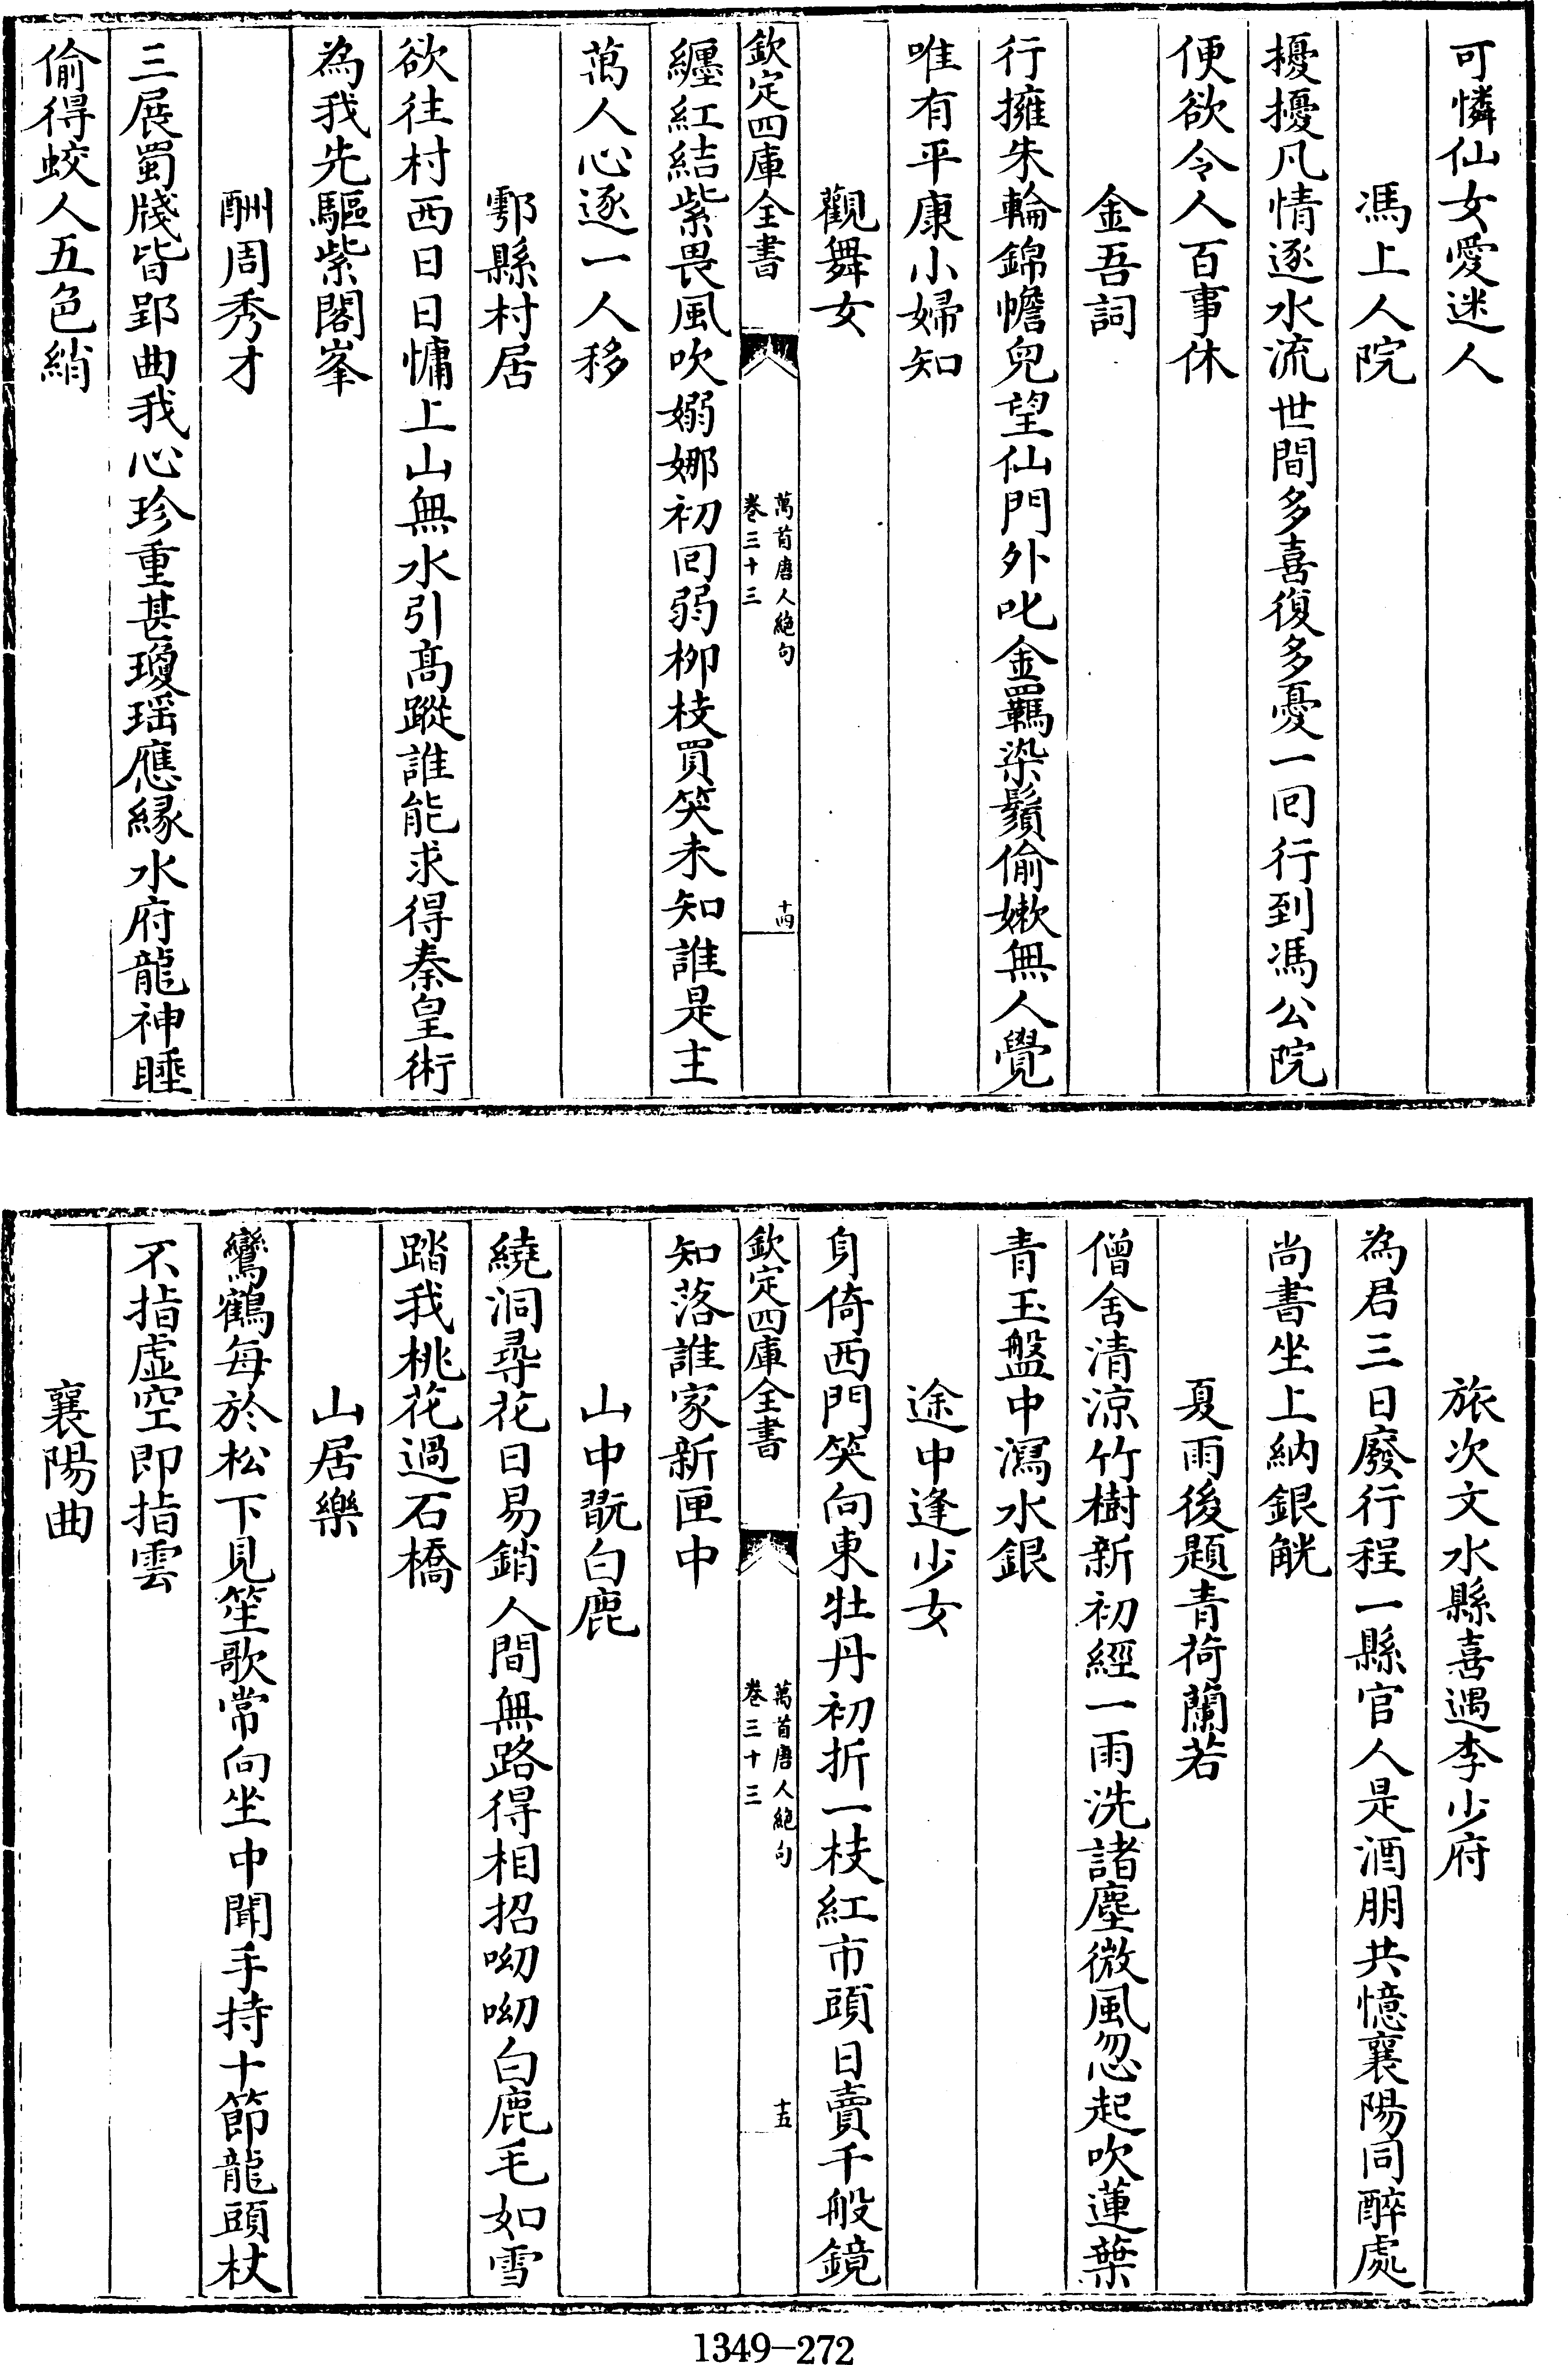 可憐仙女愛迷人
馮上人院
擾擾凡情逐水流世間多喜復多憂一囘行到馮公院
便欲令人百事休
金吾詞
行擁朱輪錦幨兒望仙門外叱金羈染鬚偷嫩無人覺
唯有平康小婦知
觀舞女
欽定四庫全書
萬首唐人絶句
卷三十三
十四
纒紅結紫畏風吹嫋娜初囘弱柳枝買笑未知誰是主
萬人心逐一人移
鄠縣村居
欲往村西日日慵上山無水引髙蹤誰能求得秦皇術
為我先驅紫閣峯
酬周秀才
三展蜀牋皆郢曲我心珍重甚瓊瑶應緣水府龍神睡
偷得蛟人五色綃
旅次文水縣喜遇李少府
為君三日廢行程一縣官人是酒朋共憶襄陽同醉處
尚書坐上納銀觥
夏雨後題青荷蘭若
僧舍清涼竹樹新初經一雨洗諸塵微風忽起吹蓮葉
青玉盤中瀉水銀
途中逢少女
身倚西門笑向東牡丹初折一枝紅市頭日賣千般鏡
欽定四庫全書
萬首唐人絶句
卷三十三
十五
知落誰家新匣中
山中翫白鹿
繞洞尋花日易銷人間無路得相招呦呦白鹿毛如雪
踏我桃花過石橋
山居樂
鸞鶴每於松下見笙歌常向坐中聞手持十節龍頭杖
不指虛空即指雲
襄陽曲
1349-272